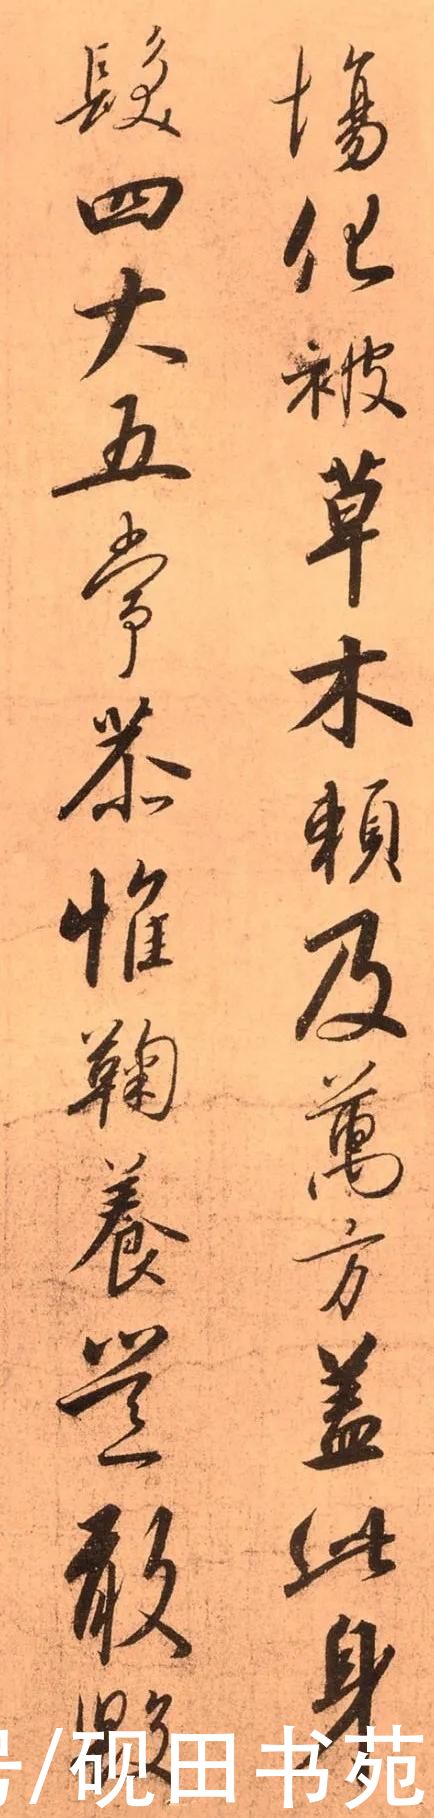 場化被草木賴及萬方盖此身
髮四大五常恭惟鞠養豈敢毀
号/砚田书苑